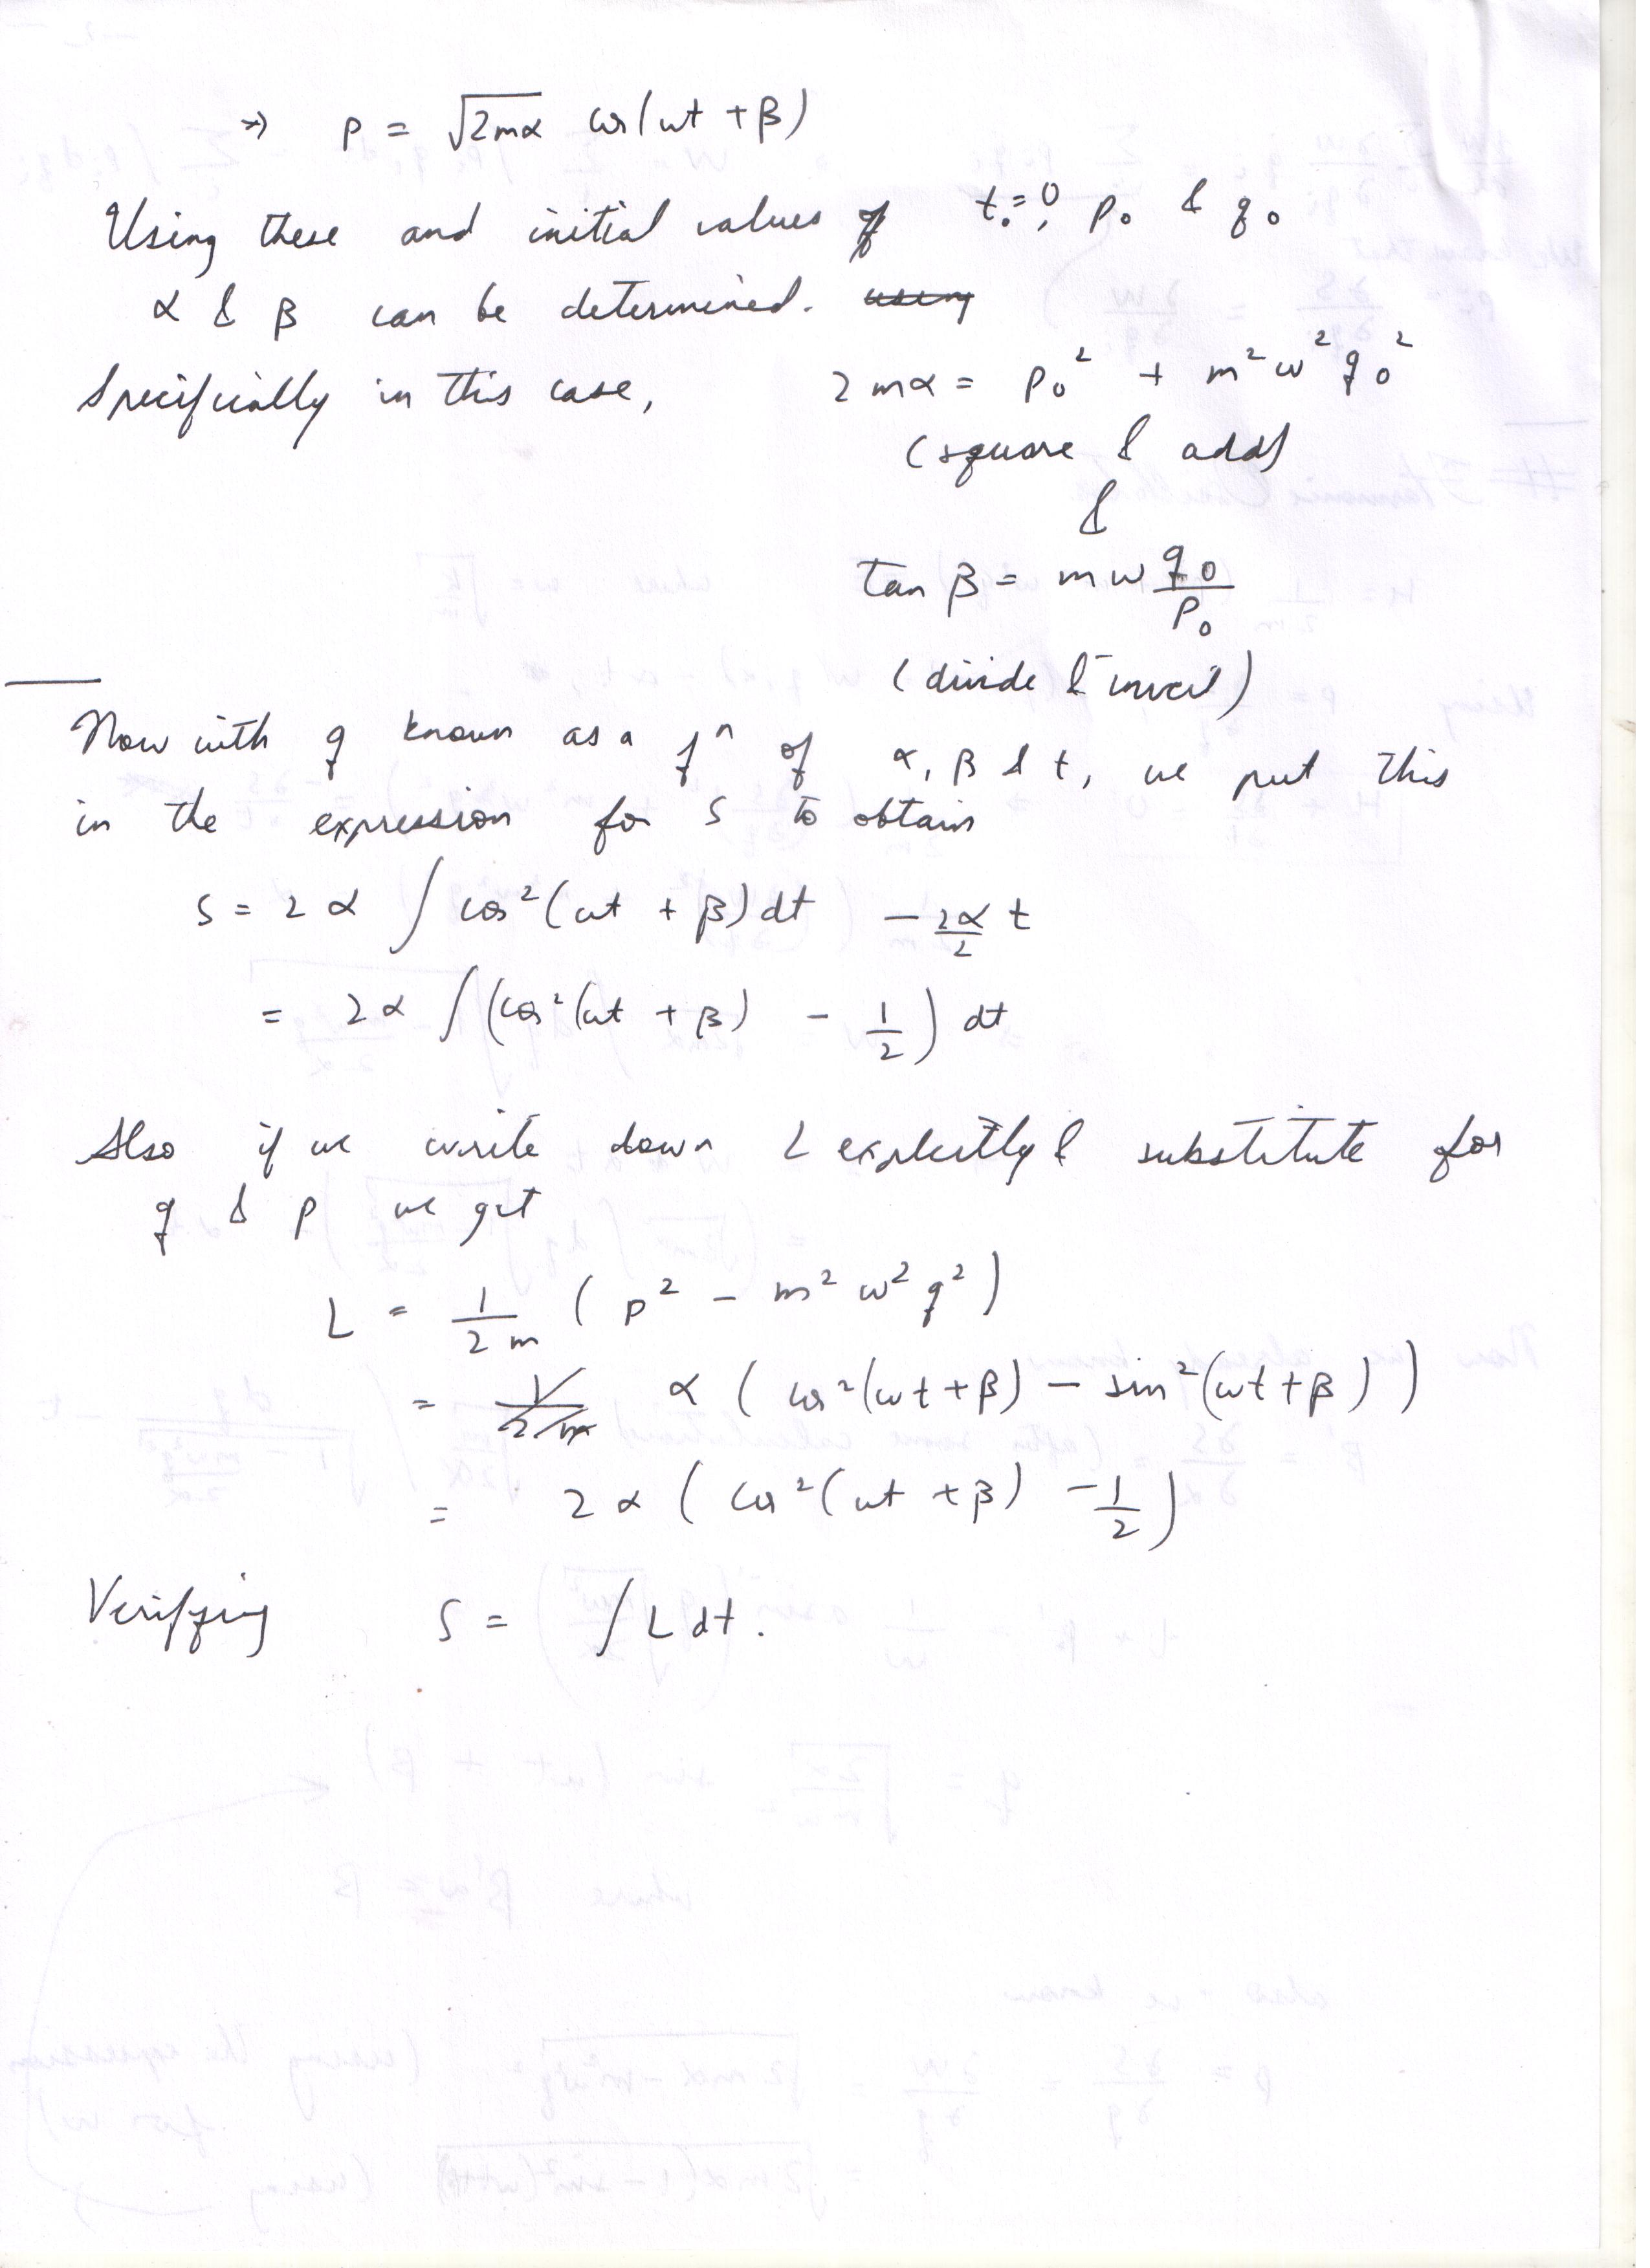 ⇒ p = √2mα cos(ωt + β)
Using these and initial values of t₀=0, p₀ & q₀
α & β can be determined. using
Specifically in this case, 2mα = p₀² + m²ω²q₀²
(square & add)
&
tan β = mω q₀/p₀
(divide & invert)
Now with q known as a fⁿ of α, β & t, we put this
in the expression for S to obtain
S = 2α ∫ cos²(ωt + β) dt − 2α/2 t
= 2α ∫ (cos²(ωt + β) − 1/2) dt
Also if we write down L explicitly & substitute for
q & p we get
L = 1/2m (p² − m²ω²q²)
= 1/2m α (cos²(ωt + β) − sin²(ωt + β))
= 2α (cos²(ωt + β) − 1/2)
Verifying S = ∫ L dt.